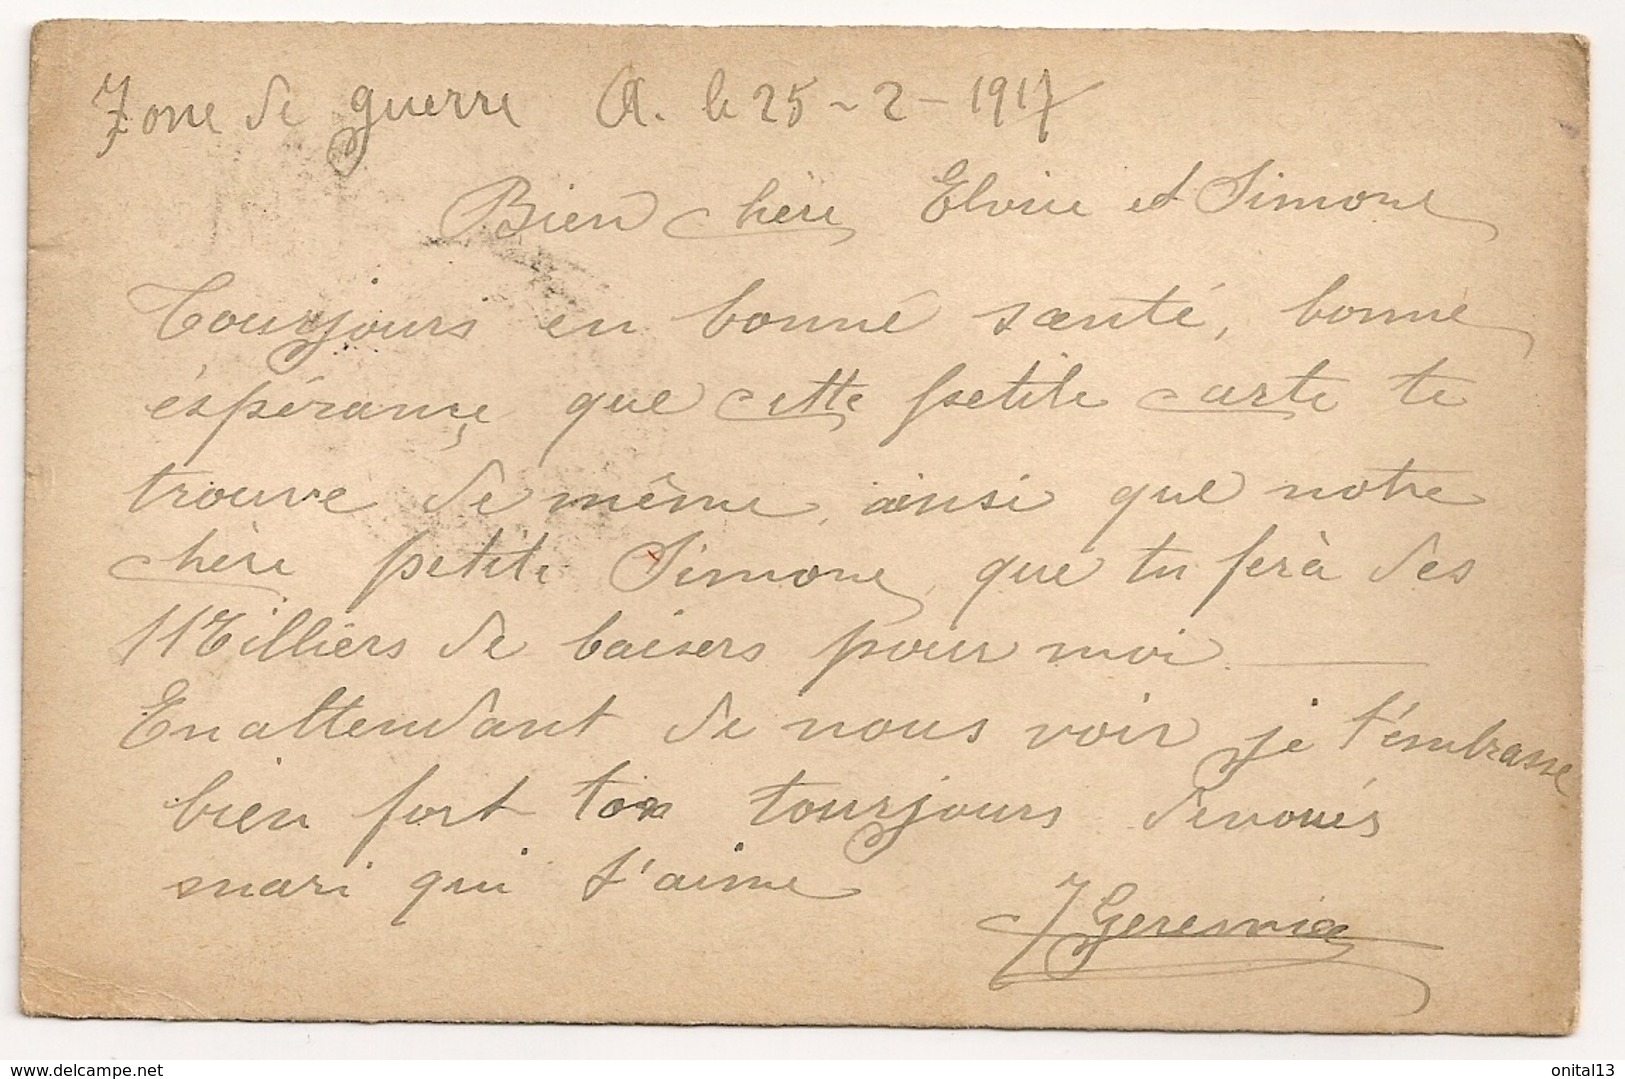 Zone de guerre A. le 25-2-1917
Bien chère Elvire et Simone
Toujours en bonné santé, bonne
éspérançe que cette petite carte te
trouve de même, ainsi que notre
chère petite Simone, que tu ferà des
Milliérs de baisers pour moi
En attendant de nous voir je t'émbrasse
bien fort ton tourjours dévoués
mari qui t'aime
J Geremia
delcampe.net
onital13